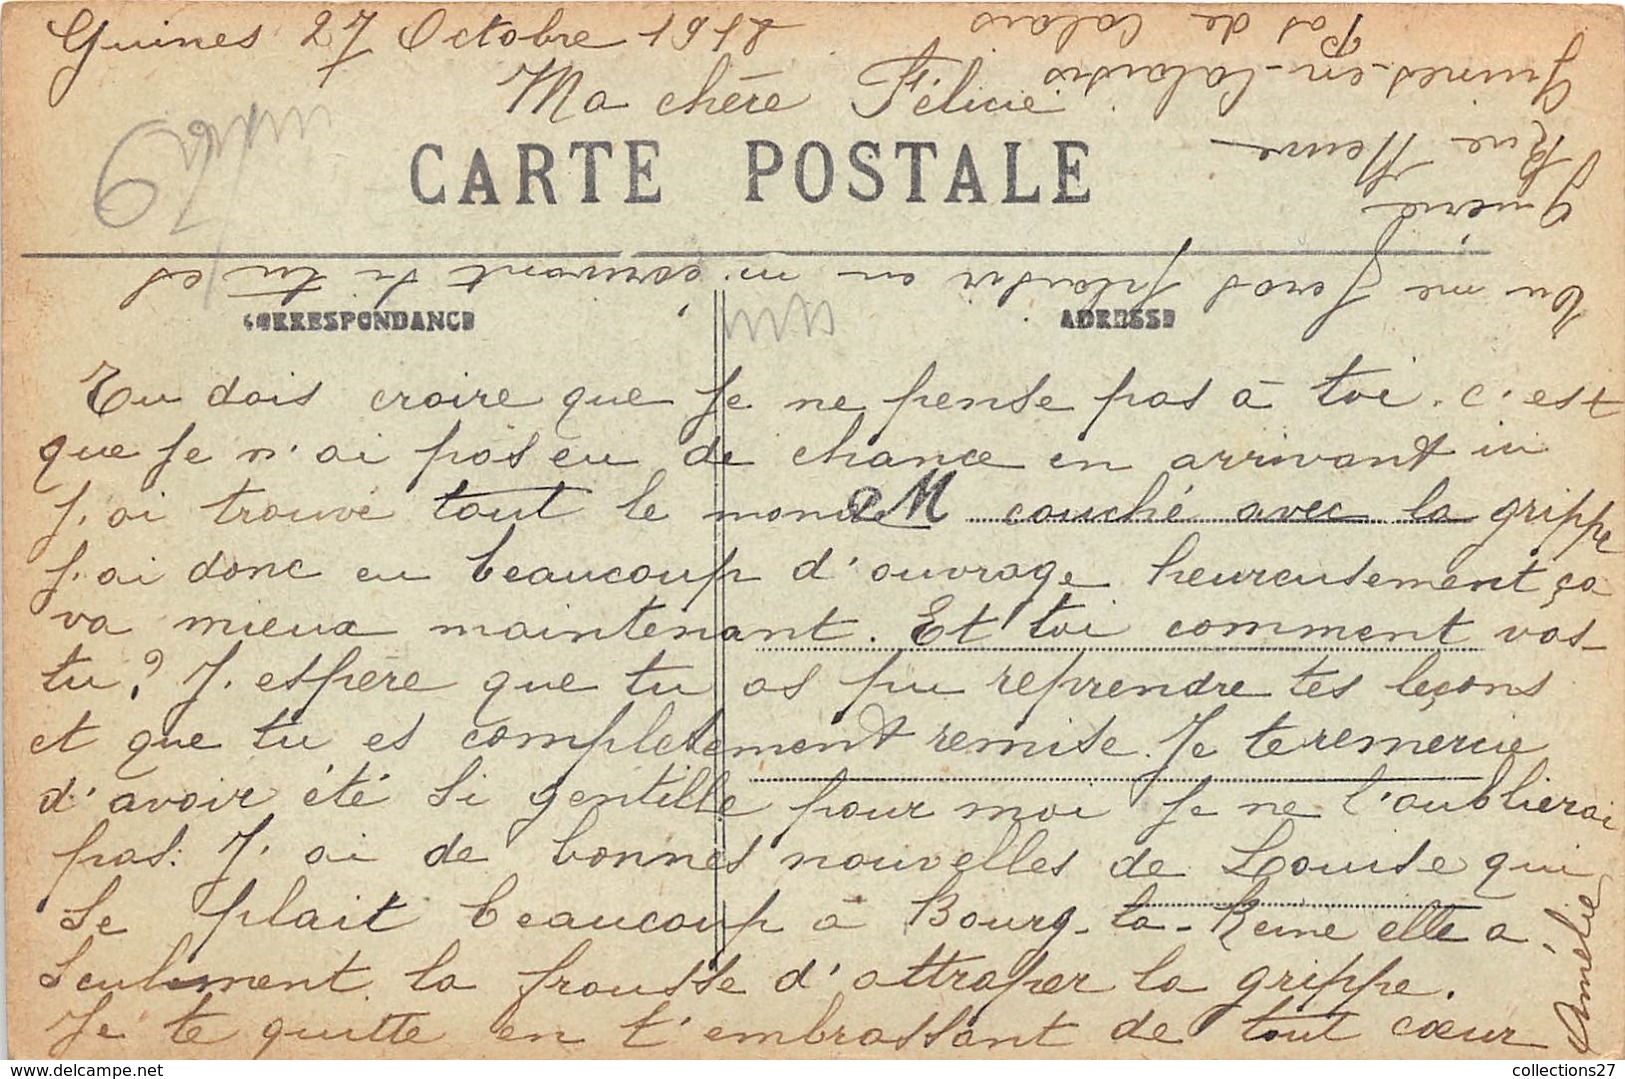 Guines 27 Octobre 1918
Ma chère Félicie
CARTE POSTALE
CORRESPONDANCE
ADRESSE
Tu dois croire que je ne pense pas à toi. c'est
que je n'ai pas eu de chance en arrivant ici
J'ai trouvé tout le monde couché avec la grippe
J'ai donc eu beaucoup d'ouvrage heureusement ça
va mieux maintenant. Et toi comment vas-
tu? J'espère que tu as pu reprendre tes leçons
et que tu es complètement remise. Je te remercie
d'avoir été si gentille pour moi je ne l'oublierai
pas. J'ai de bonnes nouvelles de Louise qui
se plait beaucoup à Bourg-la-Reine elle a
seulement la frousse d'attraper la grippe.
Je te quitte en t'embrassant de tout cœur
Amélie
Tu me feras plaisir en m'écrivant si tu es
guérie
Rue Neuve
Guines-en-Calaisis
Pas de Calais
62
M
collections27